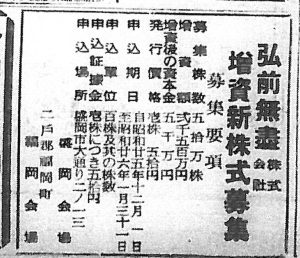 弘前無盡株式会社
増資新株式募集
募集要項
募集株数 五拾万株
増資額 弐千五百万円
増資後の資本金 五千万円
発行價格 壱株 五拾円
申込期日 自昭和廿五年十二月一日
至昭和廿六年一月三十一日
申込單位 百株及其の株数
申込証據金 壱株につき五拾円
申込場所 盛岡市大通り二ノ一三
盛岡会場
二戸郡福岡町
福岡会場